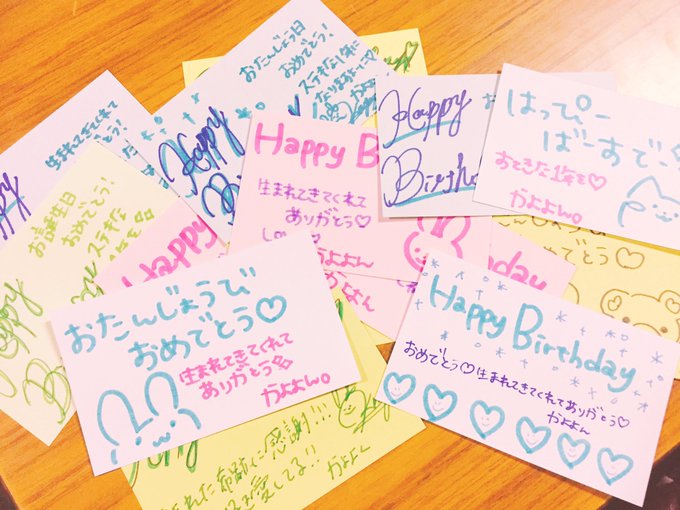 おたんじょう日
おめでとう!
ステキな1年に
Happy
生まれてきてくれて
ありがとう!
Happy
Birth
はっぴー
ばーすでー
すてきな1年を♡
かよよん。
Happy B
生まれてきてくれて
ありがとう♡
かよよん
お誕生日
おめでとう!
ステキな
Happy
day
かよよん
めでとう♡
おたんじょうび
おめでとう♡
生まれてきてくれて
ありがとう
かよよん。
Happy Birthday
おめでとう♡生まれてきてくれてありがとう♡
かよよん
に感謝!!!
愛してる!!
かよよん